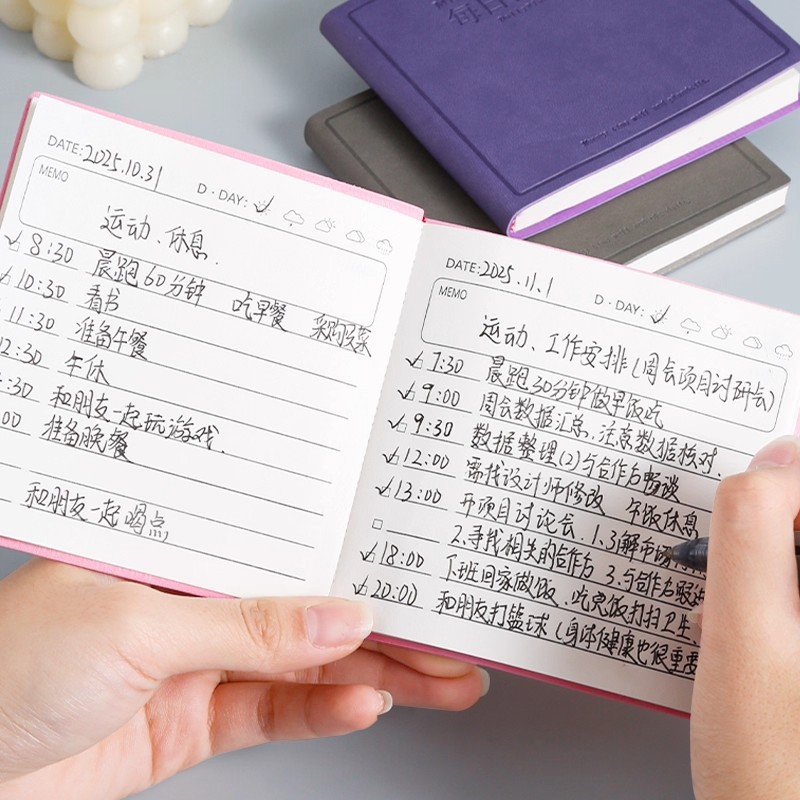 每日
DATE: 2025.10.31
D · DAY:
MEMO
运动、休息.
8:30 晨跑60分钟 吃早餐 采购蔬菜
10:30 看书
11:30 准备午餐
12:30 午休
:30 和朋友一起玩游戏.
:00 准备晚餐
和朋友一起喝点
DATE: 2025.11.1
D · DAY:
MEMO
运动、工作安排(周会项目讨研会)
7:30 晨跑30分钟做早饭吃
9:00 周会数据汇总,注意数据核对.
9:30 数据整理(2)与合作方畅谈
12:00 需找设计师修改 午饭休息
13:00 开项目讨论会.1.了解市场
2.寻找相关的合作方 3.与合作方
18:00 下班回家做饭.吃完饭打扫卫生、
20:00 和朋友打篮球(身体健康也很重要